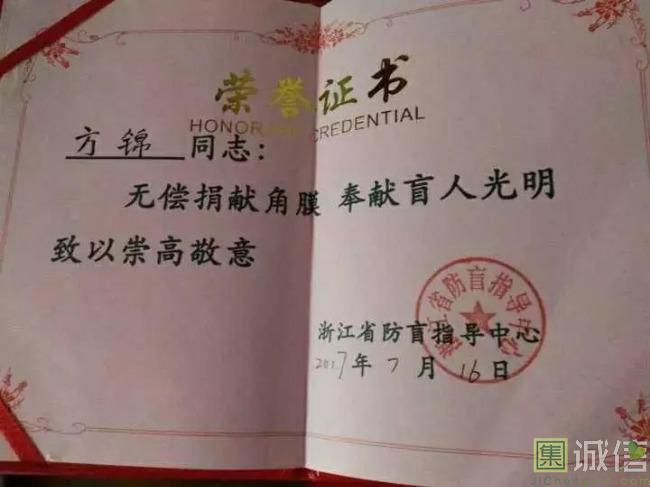 荣誉证书
HONOR CREDENTIAL
方锦 同志：
无偿捐献角膜 奉献盲人光明
致以崇高敬意
浙江省防盲指导中心
浙江省防盲指导中心
2017年7月16日
集 诚信